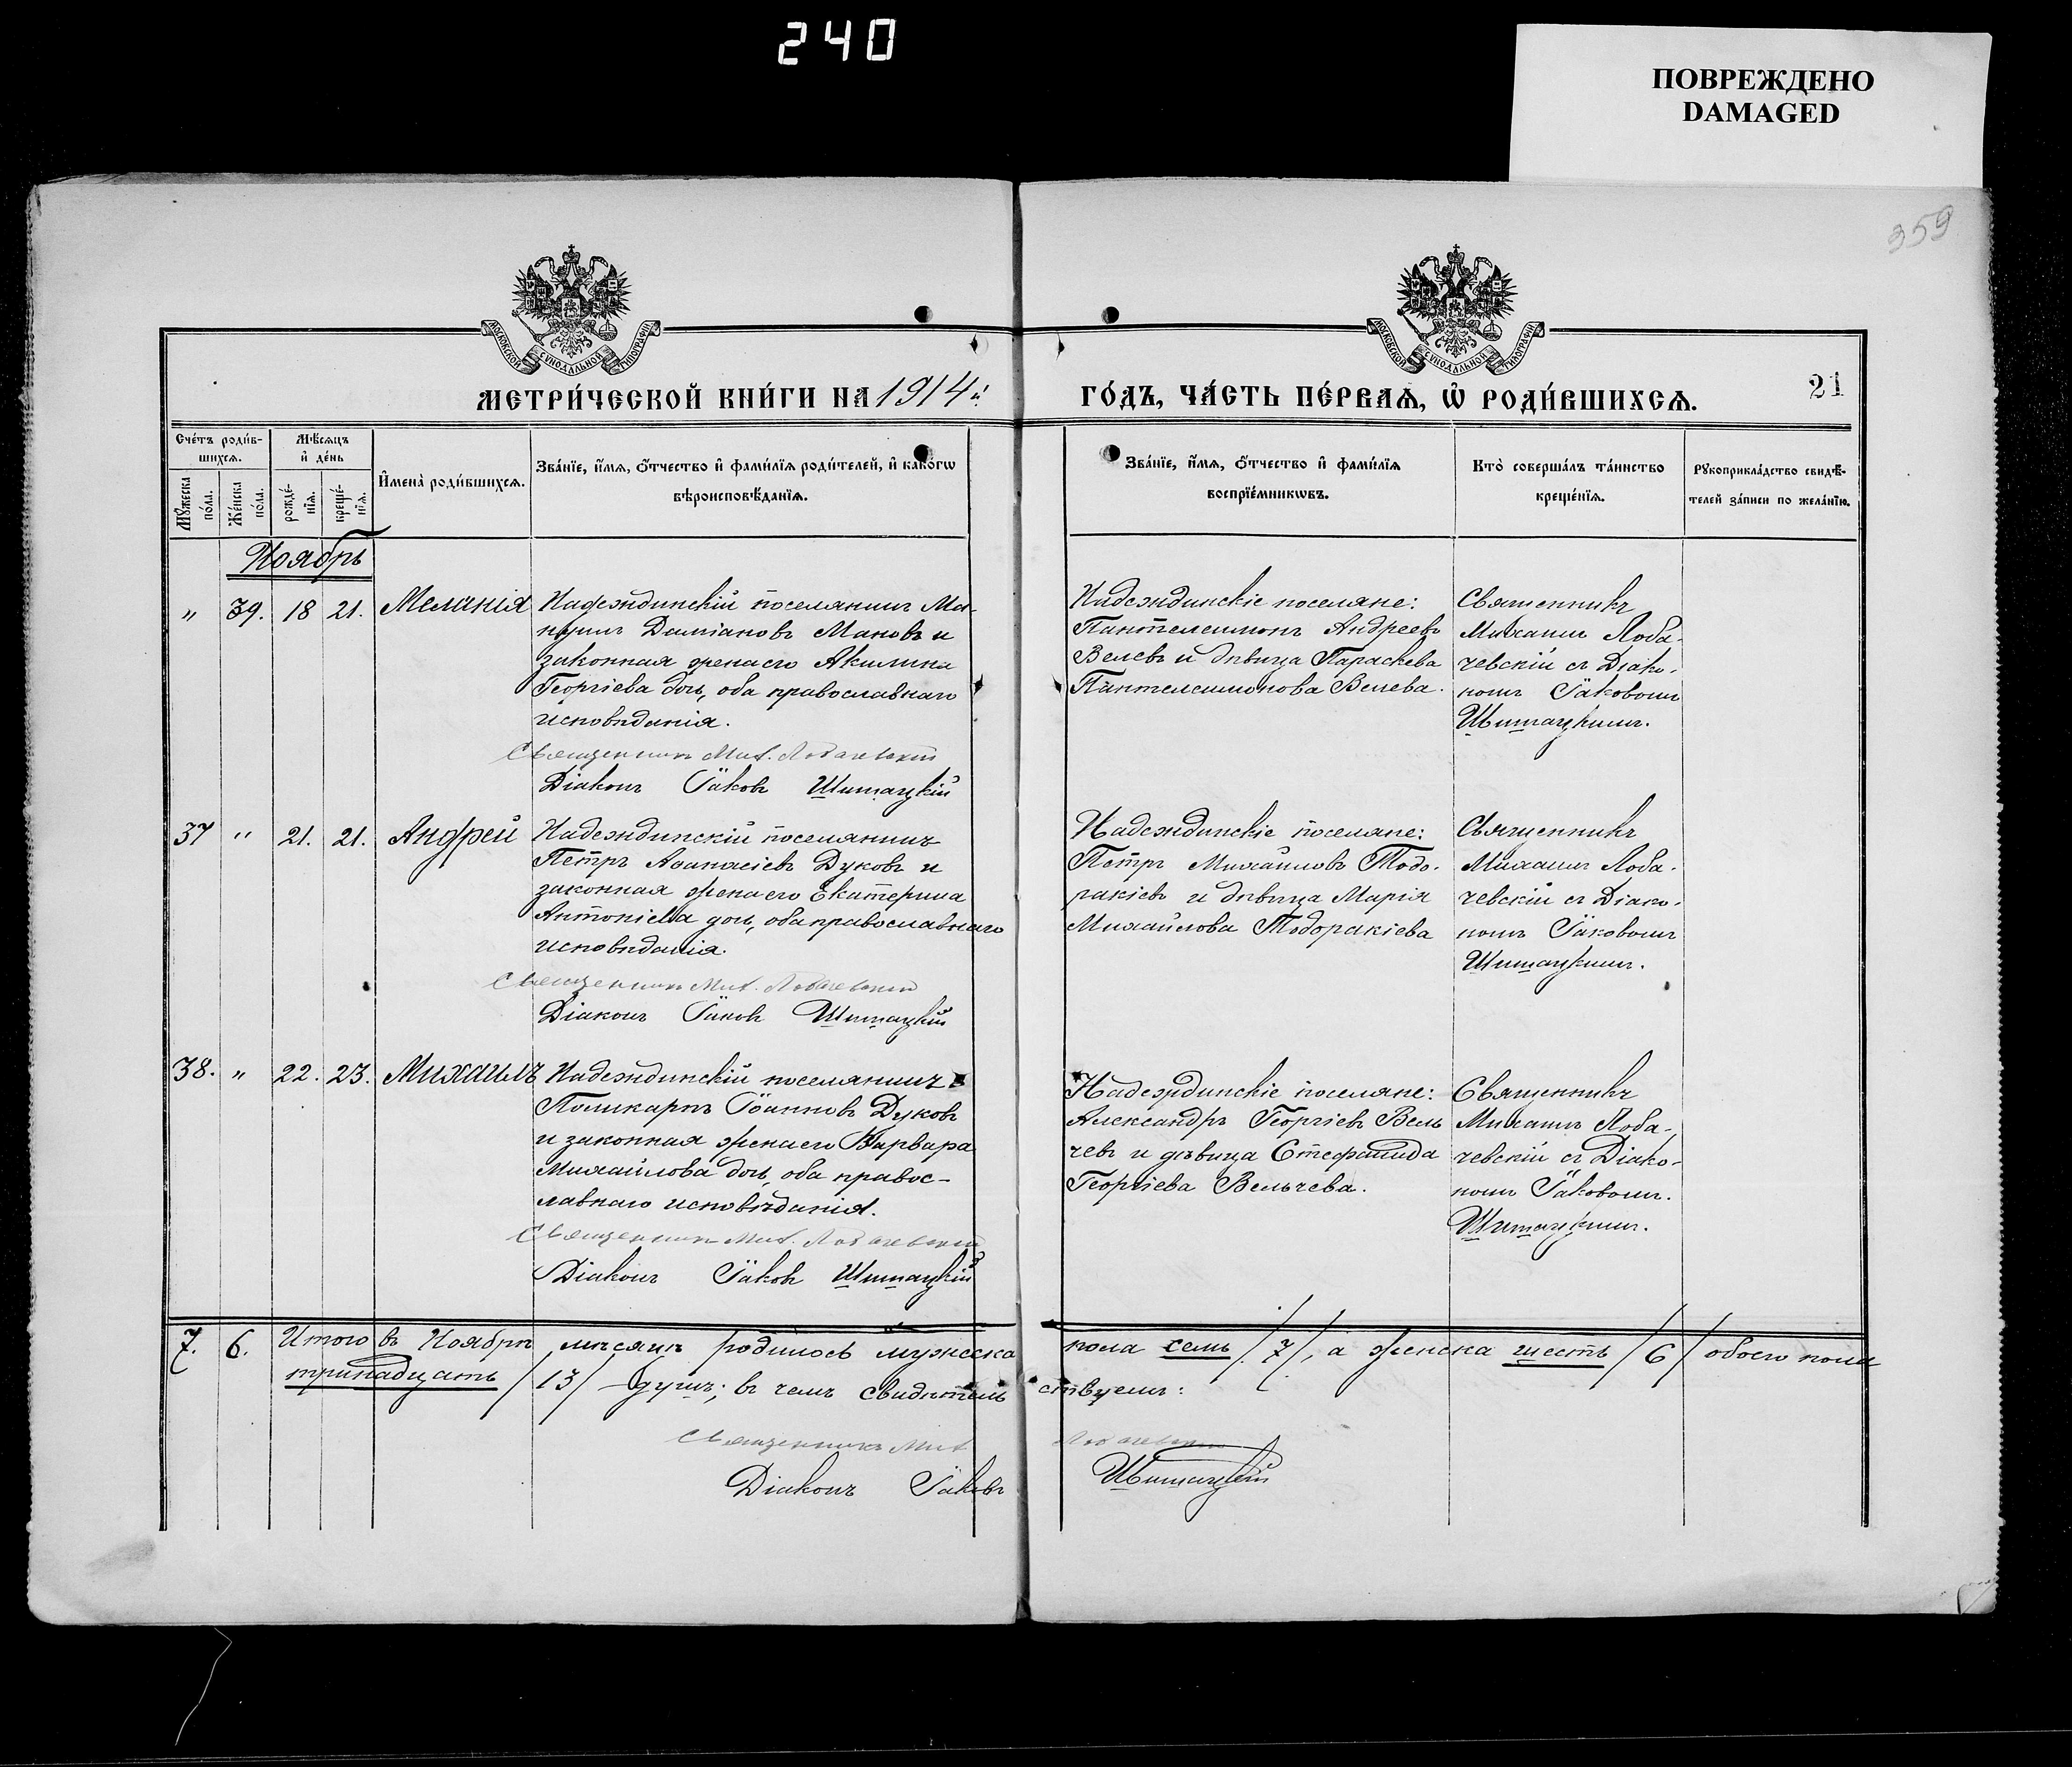 240
ПОВРЕЖДЕНО
DAMAGED
359
МОСКОВСКОЙ СѴНОДАЛЬНОЙ ТИПОГРАФІИ
МОСКОВСКОЙ СѴНОДАЛЬНОЙ ТИПОГРАФІИ
МЕТРИ́ЧЕСКОЙ КНИ́ГИ НА 1914й
ГО́ДЪ, ЧА́СТЬ ПЕ́РВАѦ, Ѡ҆ РОДИ́ВШИХСѦ.
21
Сче́тъ роди́в-
шихсѧ.
Мꙋ́жеска
по́ла.
Же́нска
по́ла.
Мѣ́сѧцъ
и҆ де́нь
рожде́-
нїѧ.
креще́-
нїѧ.
И҆мена̀ роди́вшихсѧ.
Зва́нїе, и҆́мѧ, ѻ҆́тчество и҆ фами́лїѧ роди́телей, и҆ како́гѡ
вѣроисповѣ́данїѧ.
Зва́нїе, и҆́мѧ, ѻ҆́тчество и҆ фами́лїѧ
воспрїе́мникѡвъ.
Кто̀ соверша́лъ та́инство
креще́нїѧ.
Рꙋкоприкла́дство свидѣ́-
телей за́писи по жела́нїю.
Ноябрь
" 39. 18 21. Меланія
Надеждинскій поселянинъ Ма-
Даміановъ Мановъ и
законная жена его Акилина
Георгіева дочь, оба православнаго
исповѣданія.
Священникъ Мих. Лобачевскій
Діаконъ Іаковъ Шишацкій
Надеждинскіе поселяне:
Пантелеимонъ Андреевъ
Велевъ и дѣвица Параскева
Пантелеимонова Велева.
Священникъ
Михаилъ Лоба-
чевскій съ Діако-
номъ Іаковомъ
Шишацкимъ.
37 " 21. 21. Андрей
Надеждинскій поселянинъ
Петръ Аѳанасіевъ Дуковъ и
законная жена его Екатерина
Антоніева дочь, оба православнаго
исповѣданія.
Священникъ Мих. Лобачевскій
Діаконъ Іаковъ Шишацкій
Надеждинскіе поселяне:
Петръ Михайловъ Тодо-
ракіевъ и дѣвица Марія
Михайлова Тодоракіева
Священникъ
Михаилъ Лоба-
чевскій съ Діако-
номъ Іаковомъ
Шишацкимъ.
38. " 22. 23. Михаилъ
Надеждинскій поселянинъ
Поликарпъ Іоанновъ Дуковъ
и законная жена его Варвара
Михайлова дочь, оба правос-
лавнаго исповѣданія.
Священникъ Мих. Лобачевскій
Діаконъ Іаковъ Шишацкій
Надеждинскіе поселяне:
Александръ Георгіевъ Вель
чевъ и дѣвица Стефанида
Георгіева Вельчева.
Священникъ
Михаилъ Лоба-
чевскій съ Діако-
номъ Іаковомъ.
Шишацкимъ.
7. 6. Итого въ Ноябрѣ мѣсяцѣ родилось мужеска пола семь /7/, а женска шесть /6/ обоего пола
тринадцать /13/ душъ; въ чемъ свидѣтельствуемъ:
Священникъ Мих. Лобачевскій
Діаконъ Іаковъ Шишацкій